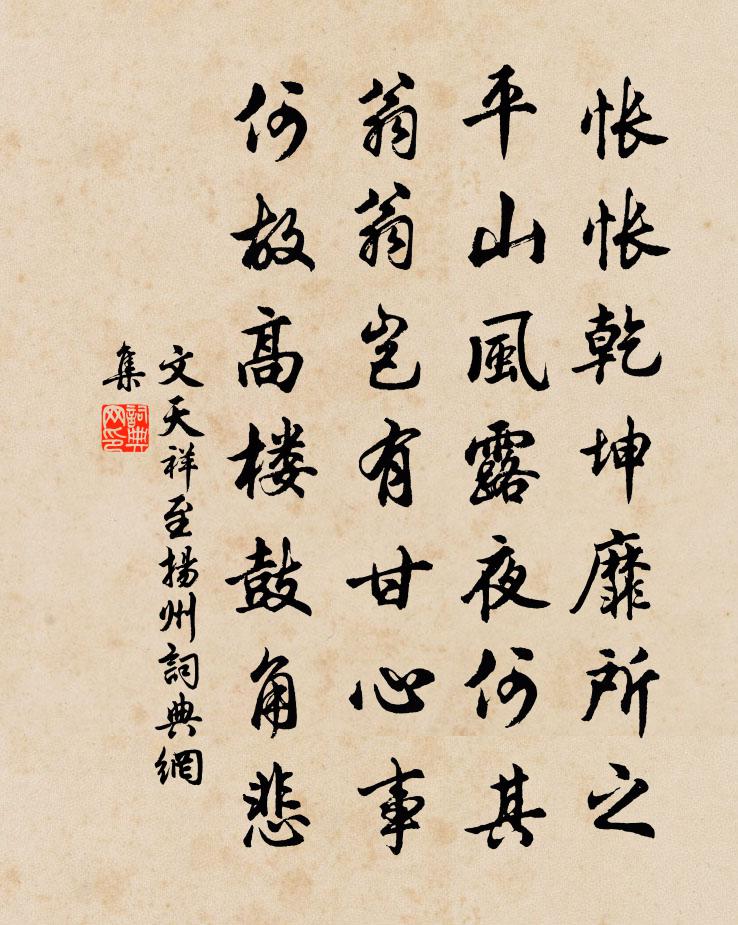 悵悵乾坤靡所之
平山風露夜何其
翁翁豈有甘心事
何故高楼鼓角悲
文天祥至揚州詞典網
集
詞典
网印